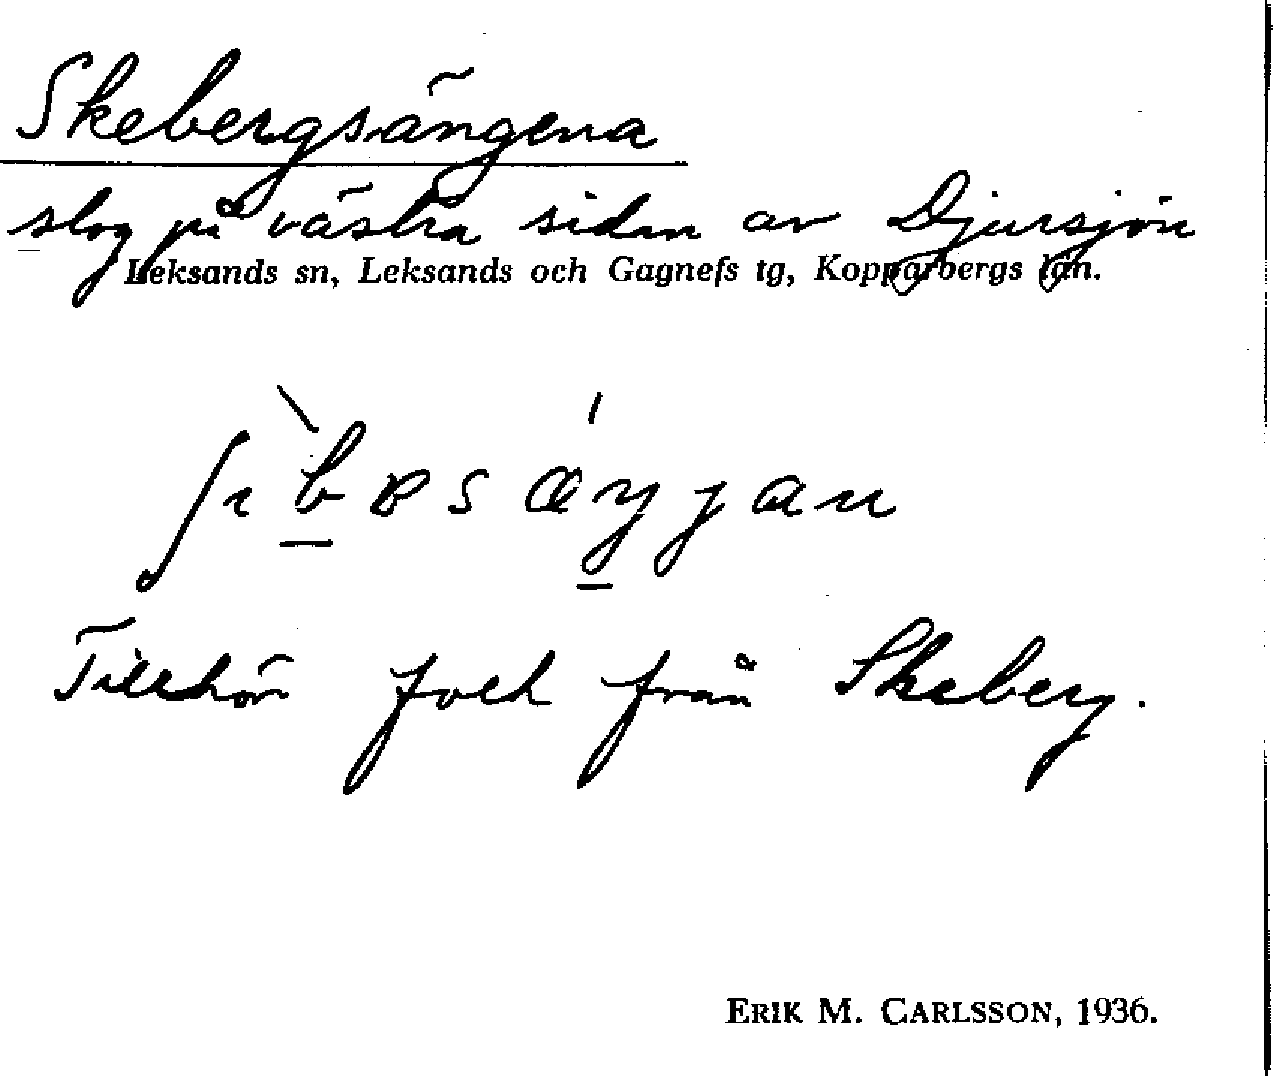 Skebergsängena
slog på västra sidan av Djursjön
Leksands sn, Leksands och Gagnefs tg, Kopparbergs län.
Tillhör folk från Skeberg.
ERIK M. CARLSSON, 1936.